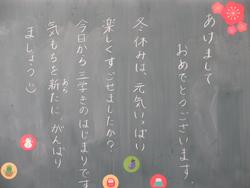 あけまして
おめでとうございます。
冬休みは、元気いっぱい
楽しくすごせましたか？
今日から三学きのはじまりです
気もちを新たに、がんばり
あら
ましょう